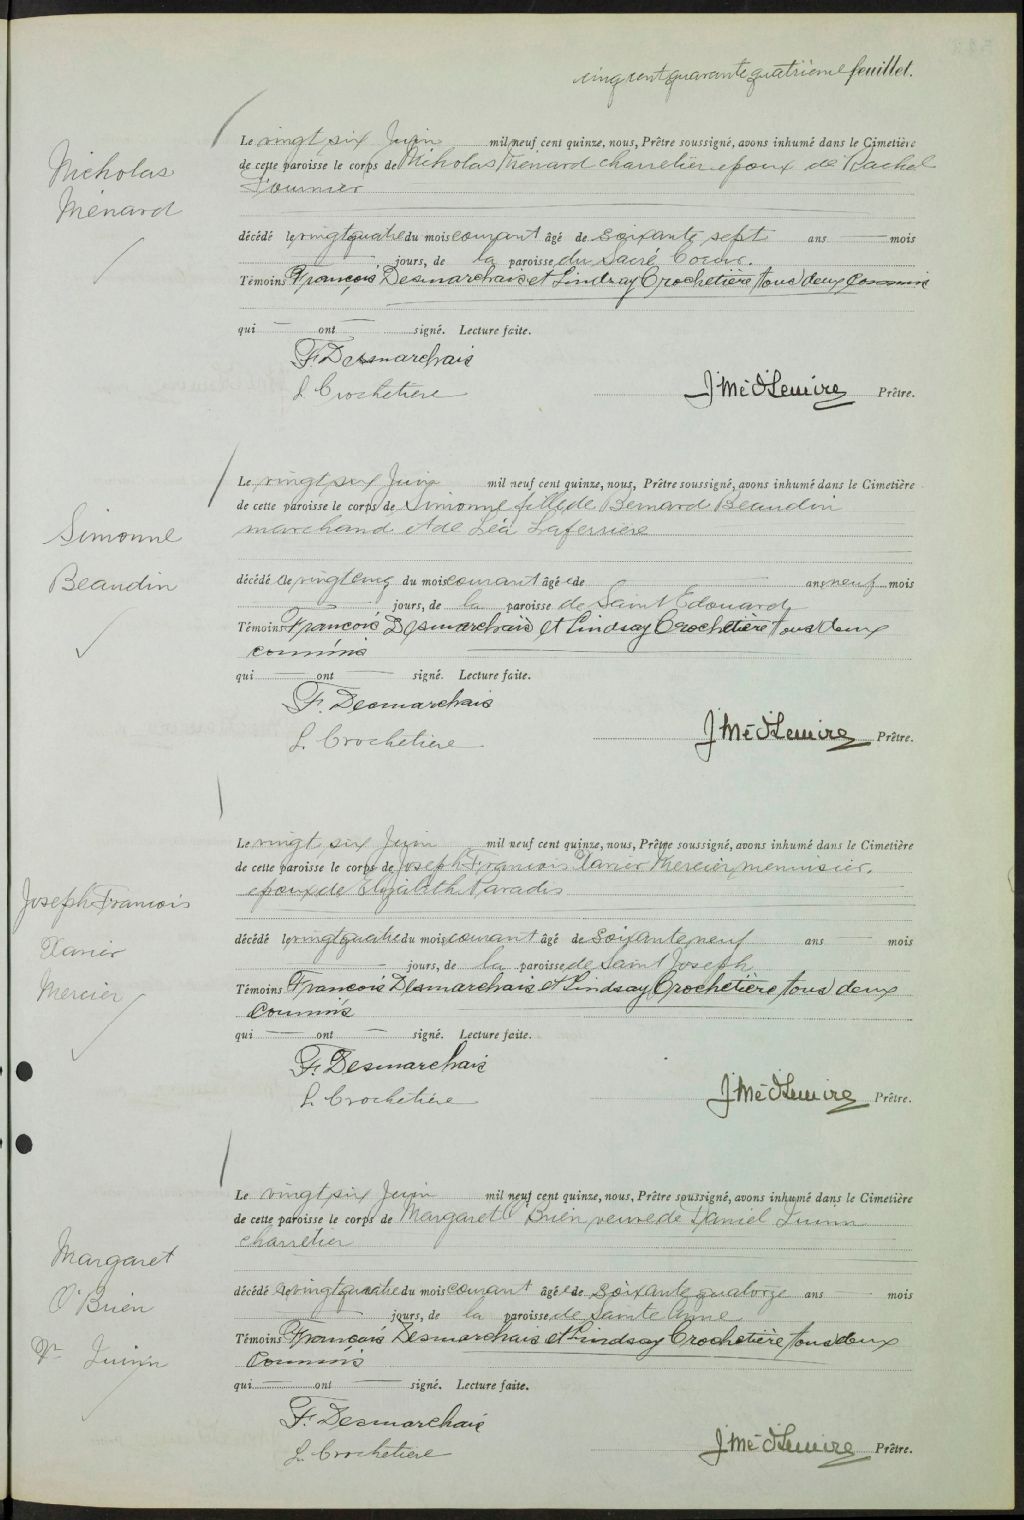 cinq cent quarante quatrième feuillet.
Nicholas
Ménard
Le vingt six Juin mil neuf cent quinze, nous, Prêtre soussigné, avons inhumé dans le Cimetière
de cette paroisse le corps de Nicholas Ménard charretier epoux de Rachel
Fournier
décédé le vingt quatre du mois courant âgé de soixante sept ans — mois
— jours, de la paroisse du Sacré Coeur.
Témoins François Desmarchais et Lindsay Crochetière tous deux commis
qui — ont — signé. Lecture faite.
F. Desmarchais
L. Crochetiere
Prêtre.
Simonne
Beaudin
Le vingt six Juin mil neuf cent quinze, nous, Prêtre soussigné, avons inhumé dans le Cimetière
de cette paroisse le corps de Simonne fille de Bernard Beaudin
marchand et de Léa Laferriere
décédée le vingt cinq du mois courant âgée de — ans neuf mois
— jours, de la paroisse de Saint Edouard
Témoins François Desmarchais et Lindsay Crochetière tous deux
commis
qui — ont — signé. Lecture faite.
F. Desmarchais
L. Crochetiere
Prêtre.
Joseph Francois
Xavier
Mercier
Le vingt six Juin mil neuf cent quinze, nous, Prêtre soussigné, avons inhumé dans le Cimetière
de cette paroisse le corps de Joseph Francois Xavier Mercier, menuisier,
epoux de Elizabeth Paradis
décédé le vingt quatre du mois courant âgé de soixante neuf ans — mois
— jours, de la paroisse de Saint Joseph
Témoins François Desmarchais et Lindsay Crochetière tous deux
commis
qui — ont — signé. Lecture faite.
F. Desmarchais
L. Crochetiere
Prêtre.
Margaret
O'Brien
Quinn
Le vingt six Juin mil neuf cent quinze, nous, Prêtre soussigné, avons inhumé dans le Cimetière
de cette paroisse le corps de Margaret O'Brien veuve de Daniel Quinn
charretier
décédée le vingt quatre du mois courant âgée de soixante quatorze ans — mois
— jours, de la paroisse de Sainte Anne
Témoins François Desmarchais et Lindsay Crochetière tous deux
commis
qui — ont — signé. Lecture faite.
F. Desmarchais
L. Crochetiere
Prêtre.